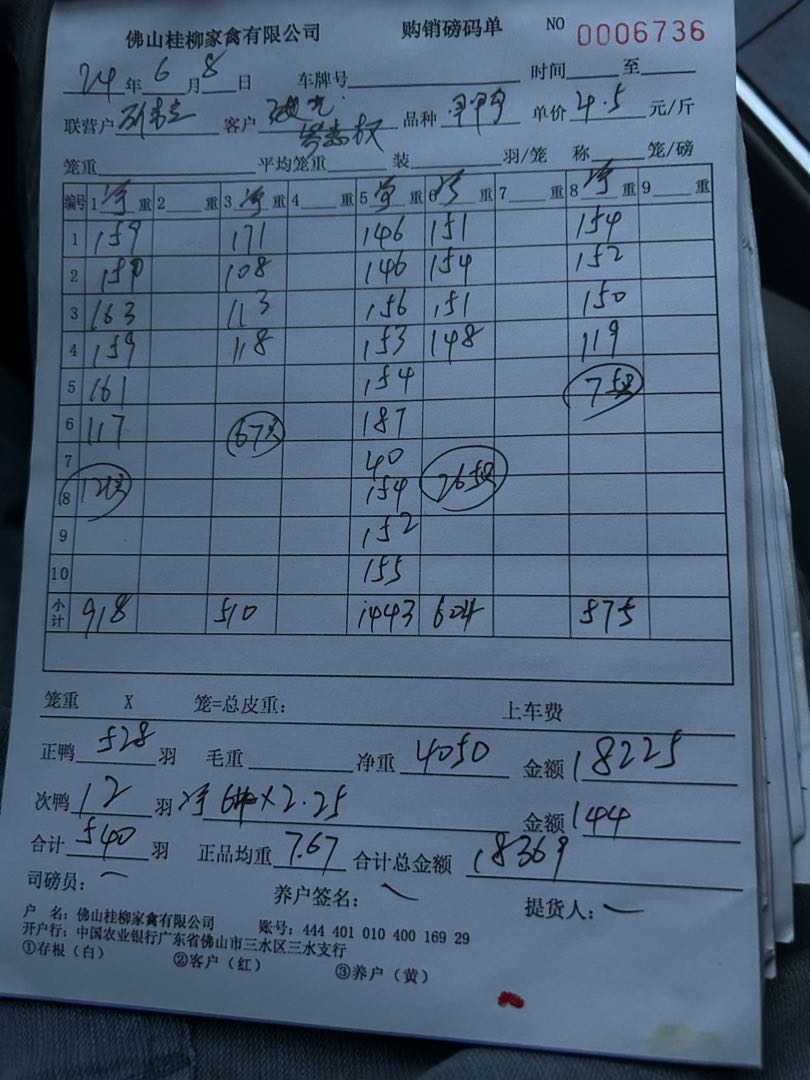 佛山桂柳家禽有限公司 购销磅码单 NO 0006736
24 年 6 月 8 日 车牌号 时间 至
联营户 客户 品种 单价 4.5 元/斤
笼重 平均笼重 装 羽/笼 称 笼/磅
编号 1 净 重 2 重 3 净 重 4 重 5 净 重 6 净 重 7 重 8 净 重 9 重
1 159 171 146 151 154
2 159 108 146 154 152
3 163 113 156 151 150
4 159 118 153 148 119
5 161 154 75只
6 117 67只 187
7 40
8 121只 154 265只
9 152
10 155
小计 918 510 1443 604 575
笼重 X 笼=总皮重： 上车费
正鸭 528 羽 毛重 净重 4050 金额 18225
次鸭 12 羽 净 64 X 2.25 金额 144
合计 540 羽 正品均重 7.67 合计总金额 18369
司磅员： 养户签名： 提货人：
户 名：佛山桂柳家禽有限公司 账号：444 401 010 400 169 29
开户行：中国农业银行广东省佛山市三水区三水支行
①存根（白） ②客户（红） ③养户（黄）